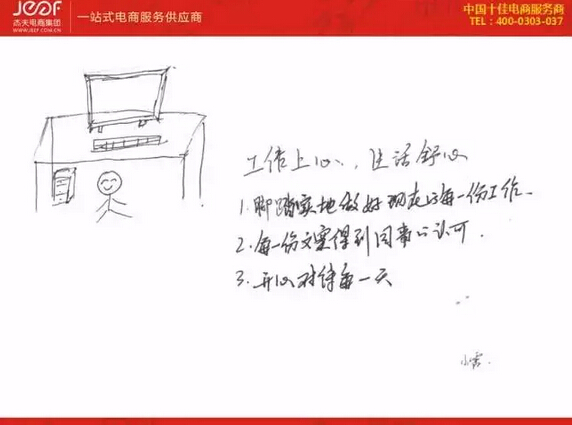 JEEF
杰夫电商集团
WWW.JEEF.COM.CN
一站式电商服务供应商
中国十佳电商服务商
TEL：400-0303-037
工作上心、生活舒心
1.脚踏实地做好现在的每一份工作.
2.每一份文案得到同事的认可.
3.开心对待每一天